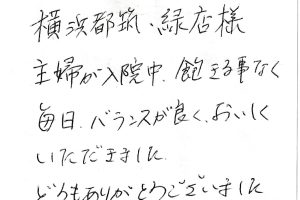 横浜都筑・緑店様
主婦が入院中、飽きる事なく
毎日、バランスが良く、おいしく
いただきました
どうもありがとうございました